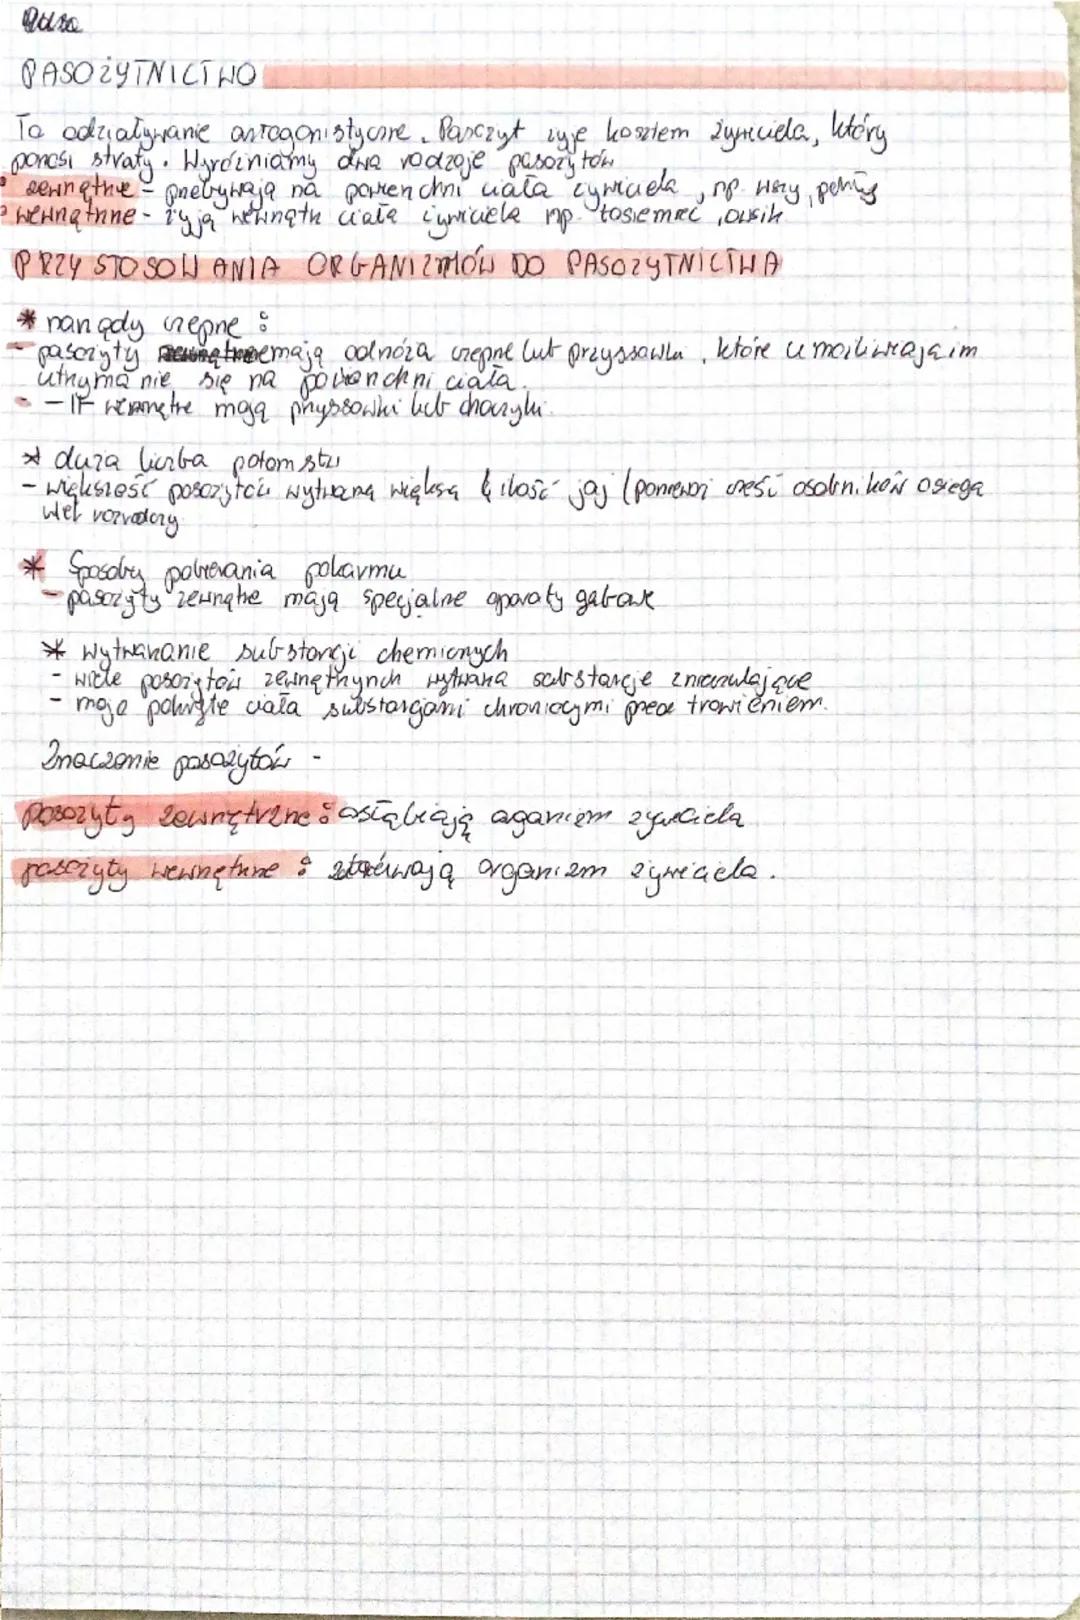 PASOŻYTNICTWO
To odziaływanie antagonistyczne. Pasożyt żyje kosztem żywiciela, który
ponosi straty. Wyróżniamy dwa rodzaje pasożytów
zewnętrzne - przebywają na powierzchni ciała żywiciela, np. wszy,
wewnętrzne - żyją wewnątrz ciała żywiciela np. tasiemiec, owsik
PRZYSTOSOWANIA ORGANIZMÓW DO PASOŻYTNICTWA
* narządy czepne :
- pasożyty mają odnóża czepne lub przyssawki, które umożliwiają im
utrzymanie się na powierzchni ciała.
- wewnątrz mają przyssawki lub haczyki.
* duża liczba potomstw
- większość pasożytów wytwarza większą ilość jaj (ponieważ część osobników osiąga
wiek rozrodczy
* Sposoby pobierania pokarmu
- pasożyty zewnątrz mają specjalne aparaty gębowe
* wytwarzanie substancji chemicznych
- wiele pasożytów zewnętrznych wytwarza substancje znieczulające
- mają pokryte ciała substancjami chroniącymi przed trawieniem.
Znaczenie pasożytów -
pasożyty zewnętrzne : osłabiają organizm żywiciela
pasożyty wewnętrzne : organizm żywiciela.